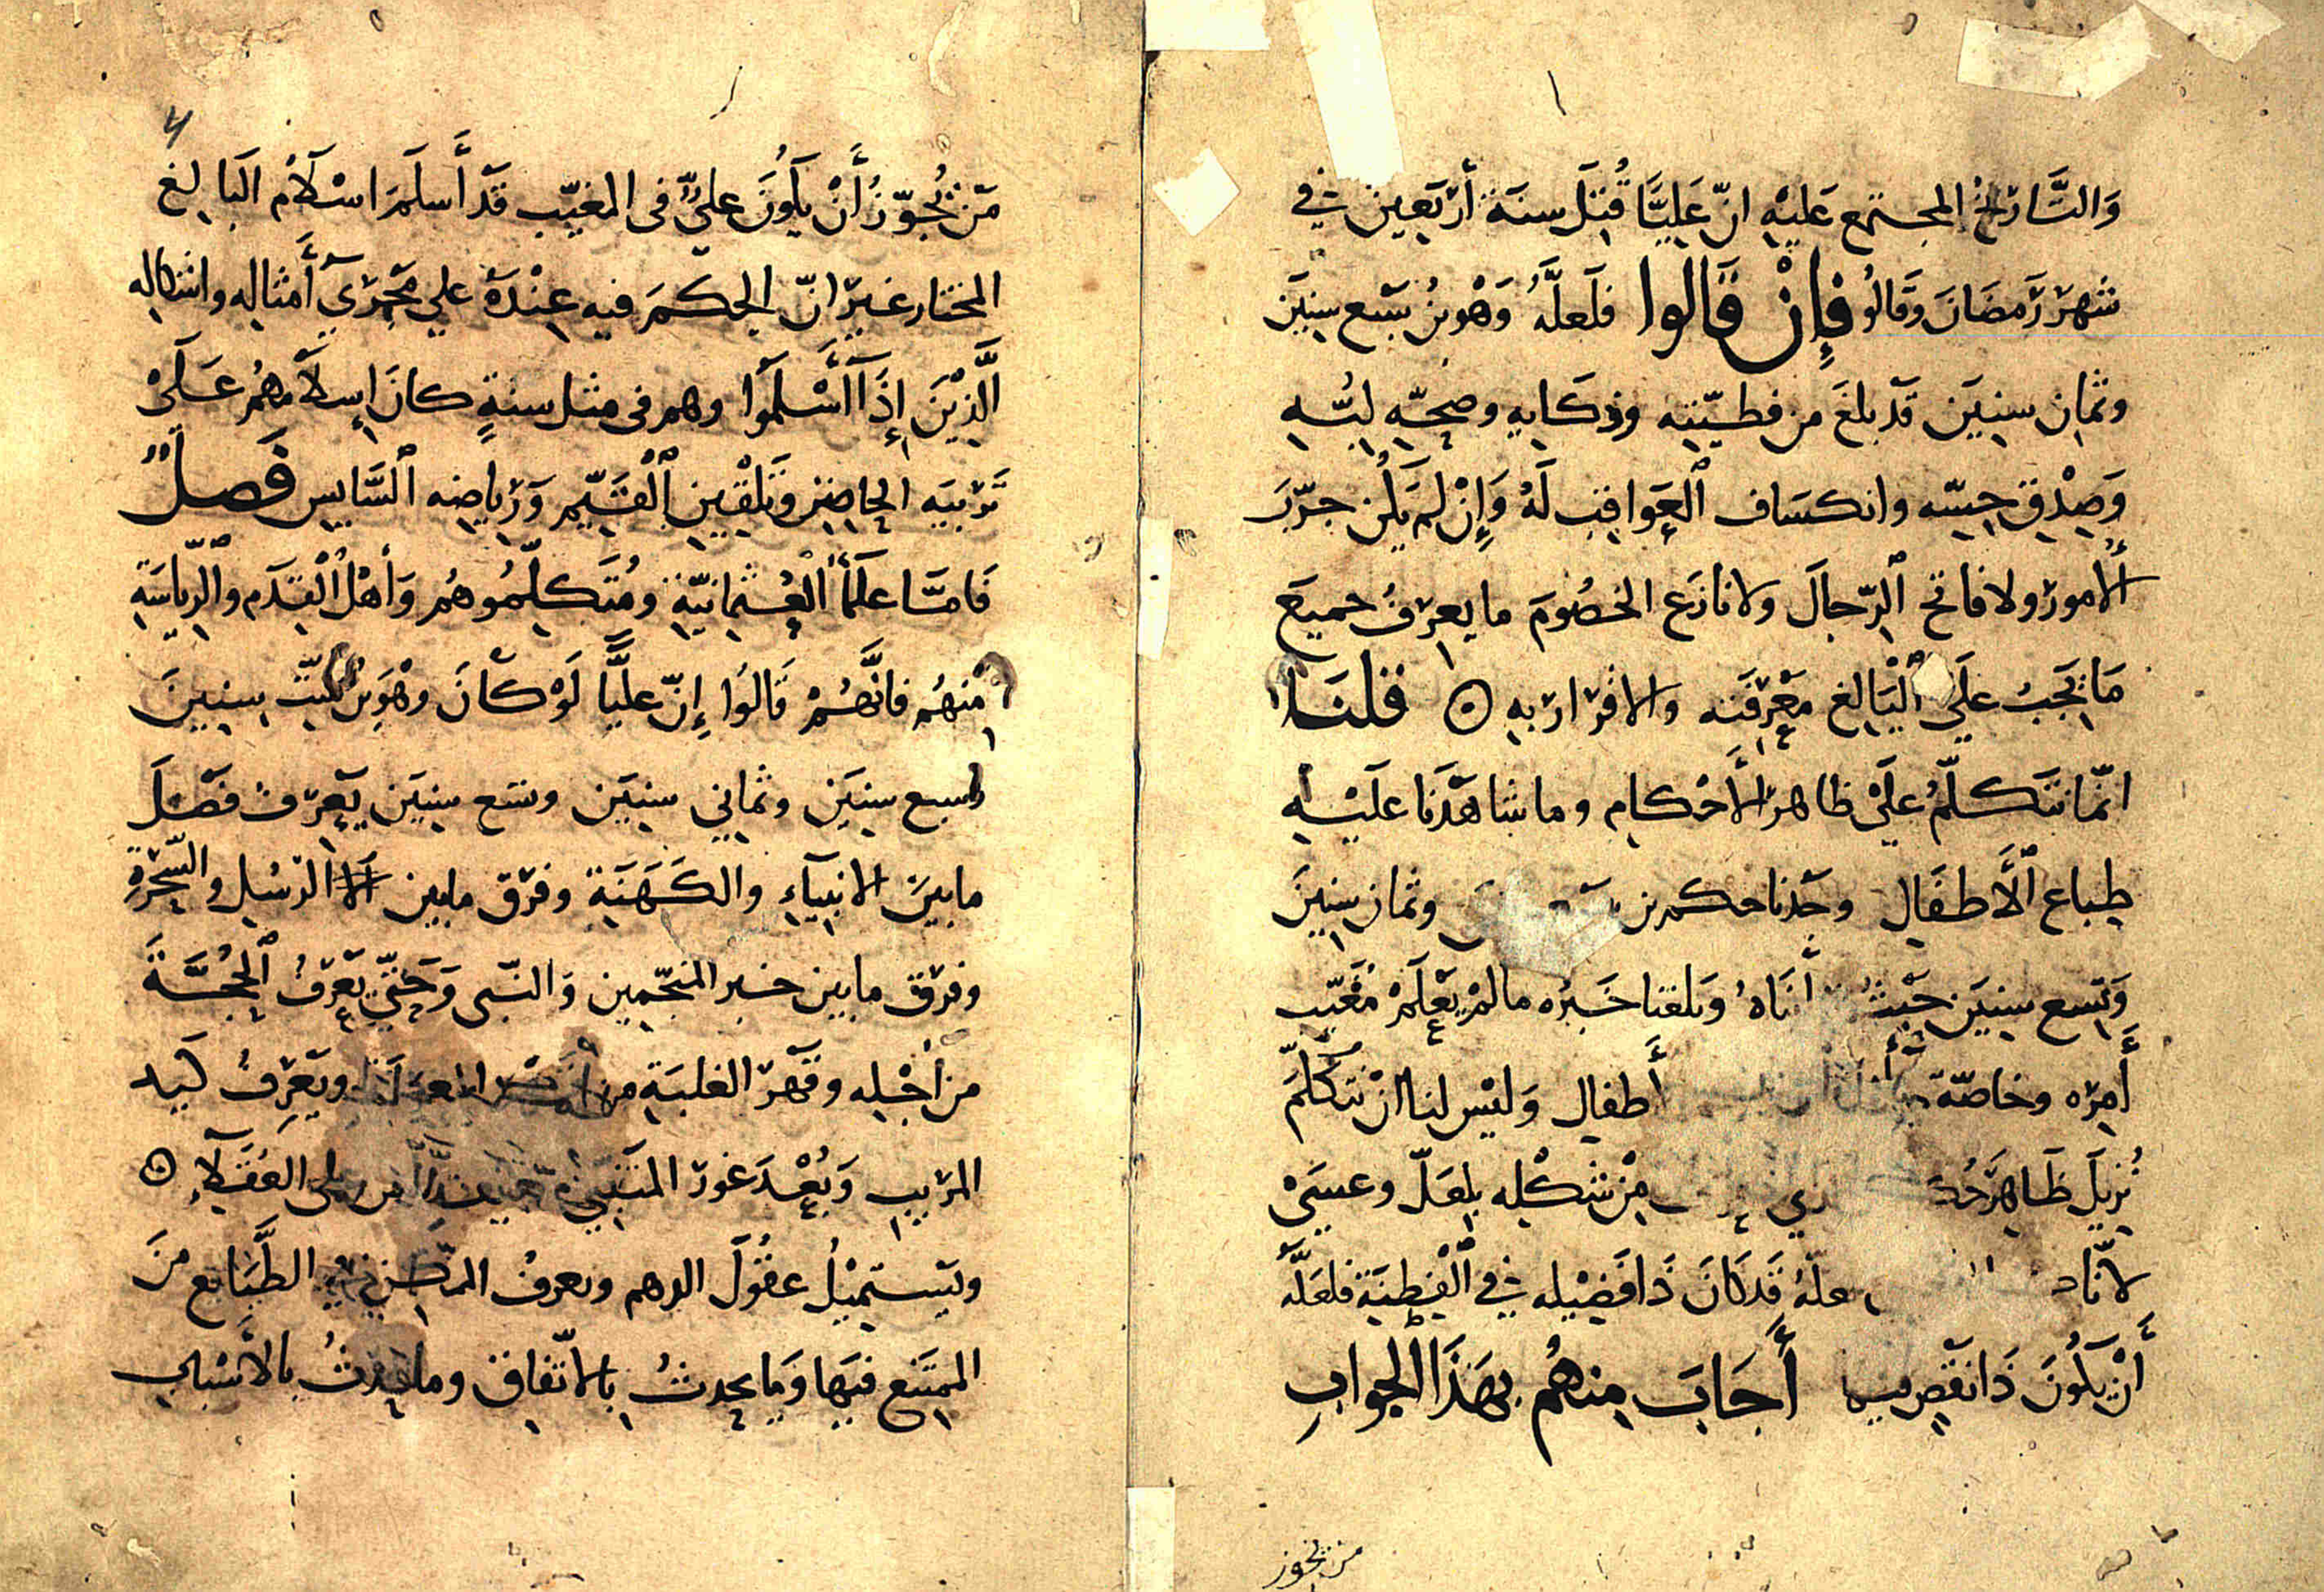 وَالتَّارِيخُ المجتمع عَلَيْهِ انّ عَلِيًّا قُتِلَ سنَةَ أرْبَعِينَ فِي
شَهرِ رَمضَانَ وَقالُو فَإِنْ قَالُوا فلَعلَّهُ وَهْوَ بنُ سَبع سِنِينَ
وثمانِ سِنِينَ قَدْ بلغَ من فطيّنتِهِ وذكَايِهِ وصِحّهِ لبُّهِ
وَصِدْقِ حِسّه وانكسَاف ٱلْعَوَاقِبِ لَهُ وَإِنْ لَمْ يَكُن جرّبَ
الأمورَ ولا فاتح ٱلرّجالَ ولا نازَع الخصُومَ ما يعرفُ جميعَ
مَا يَجَبُ عَلَى ٱلْبَالِغِ مَعْرِفَتَه والاقرار بِهِ ۞ قلنَا
انّما نَتَكلّمُ علَى ظاهر الأَحْكامِ وما شاهَدْنَا علَيْهِ
طِباع ٱلأَطفَالِ وجَدْنا حكم بن وثمان سِنِينَ
وَتِسع سِنِينَ حَيْثُ أنَاهُ وَبلغنا خَبرُه مالمْ يَعْلَمْ مُغَيّب
أَمرِه وخاصّة أَطفالِ وَليْس لنا انْ نتكلّمَ
نُزيلَ ظَاهِرَ مِنْ شكْلِه بلعَلّ وعسَى
لانّا علّهُ قَدْ كَانَ ذَا فَضِيْله فِي ٱلْفِطِنَةِ فلعَلّهُ
أَنْ يَكُونَ ذَا نقص أَجَابَ مِنهُم بِهَذَا الجوابِ
من يجوز
مَن يُجَوّزُ أَنْ يَكُونَ عليٌّ في المغيّبِ قَدْ أَسلَمَ اسْلاَم البَالغِ
المختارِ غيرَ انّ الحكمَ فيه عِنْدَهُ علي مَجْرَي أَمثاله واشكاله
الَّذِيْنَ إِذَا أَسْلَمَوا وهم في مثل سنةٍ كانَ إسلاَمهُم عَلَى
تربيَه الحاضِنِ وَتَلْقِينِ ٱلْقَيِّمِ وَرِياضِه ٱلسَّايِسِ فَصلٌ
فَامَّا علَمأُ ٱلعُثمانِيّةِ ومُتَكلِّمُوهُم وَأهْلُ ٱلْقِدَمِ وٱلرِّيَاسَةِ
مِنْهُم فانَّهُمْ قَالوُا إِنّ عليًّا لَوْ كْانَ وهْوَ بنُ سِتِّ سِنينَ
وسبع سِنِيَن وثماني سنِيَن وتسع سِنِيَن يعرفُ فصْلَ
مابينَ الانبيآءِ والكَهَنَةِ وفرْق مابين الرّسُلِ والسَّحَرَةِ
وفرْق مابين خبر المنجّمين وَالنّبي وَحَتّي يَعْرِفُ ٱلْحُجَّةَ
من أجْلِه وقَهْرَ الغلبَةِ من ويَعرِفُ كَيد
المرِيبِ وَبُعْدَ غور المتَنَبِّي على العُقَلاَءِ ۞
ويَسْتَمِيْلُ عقُوْلَ الدهم ويعرفُ الممكِن فِي الطَّبَايع مِنَ
الممتَنع فيهَا وَمَا يحدِثُ بِالاتّفاق وما يحْدِثُ بِالأسْبابِ